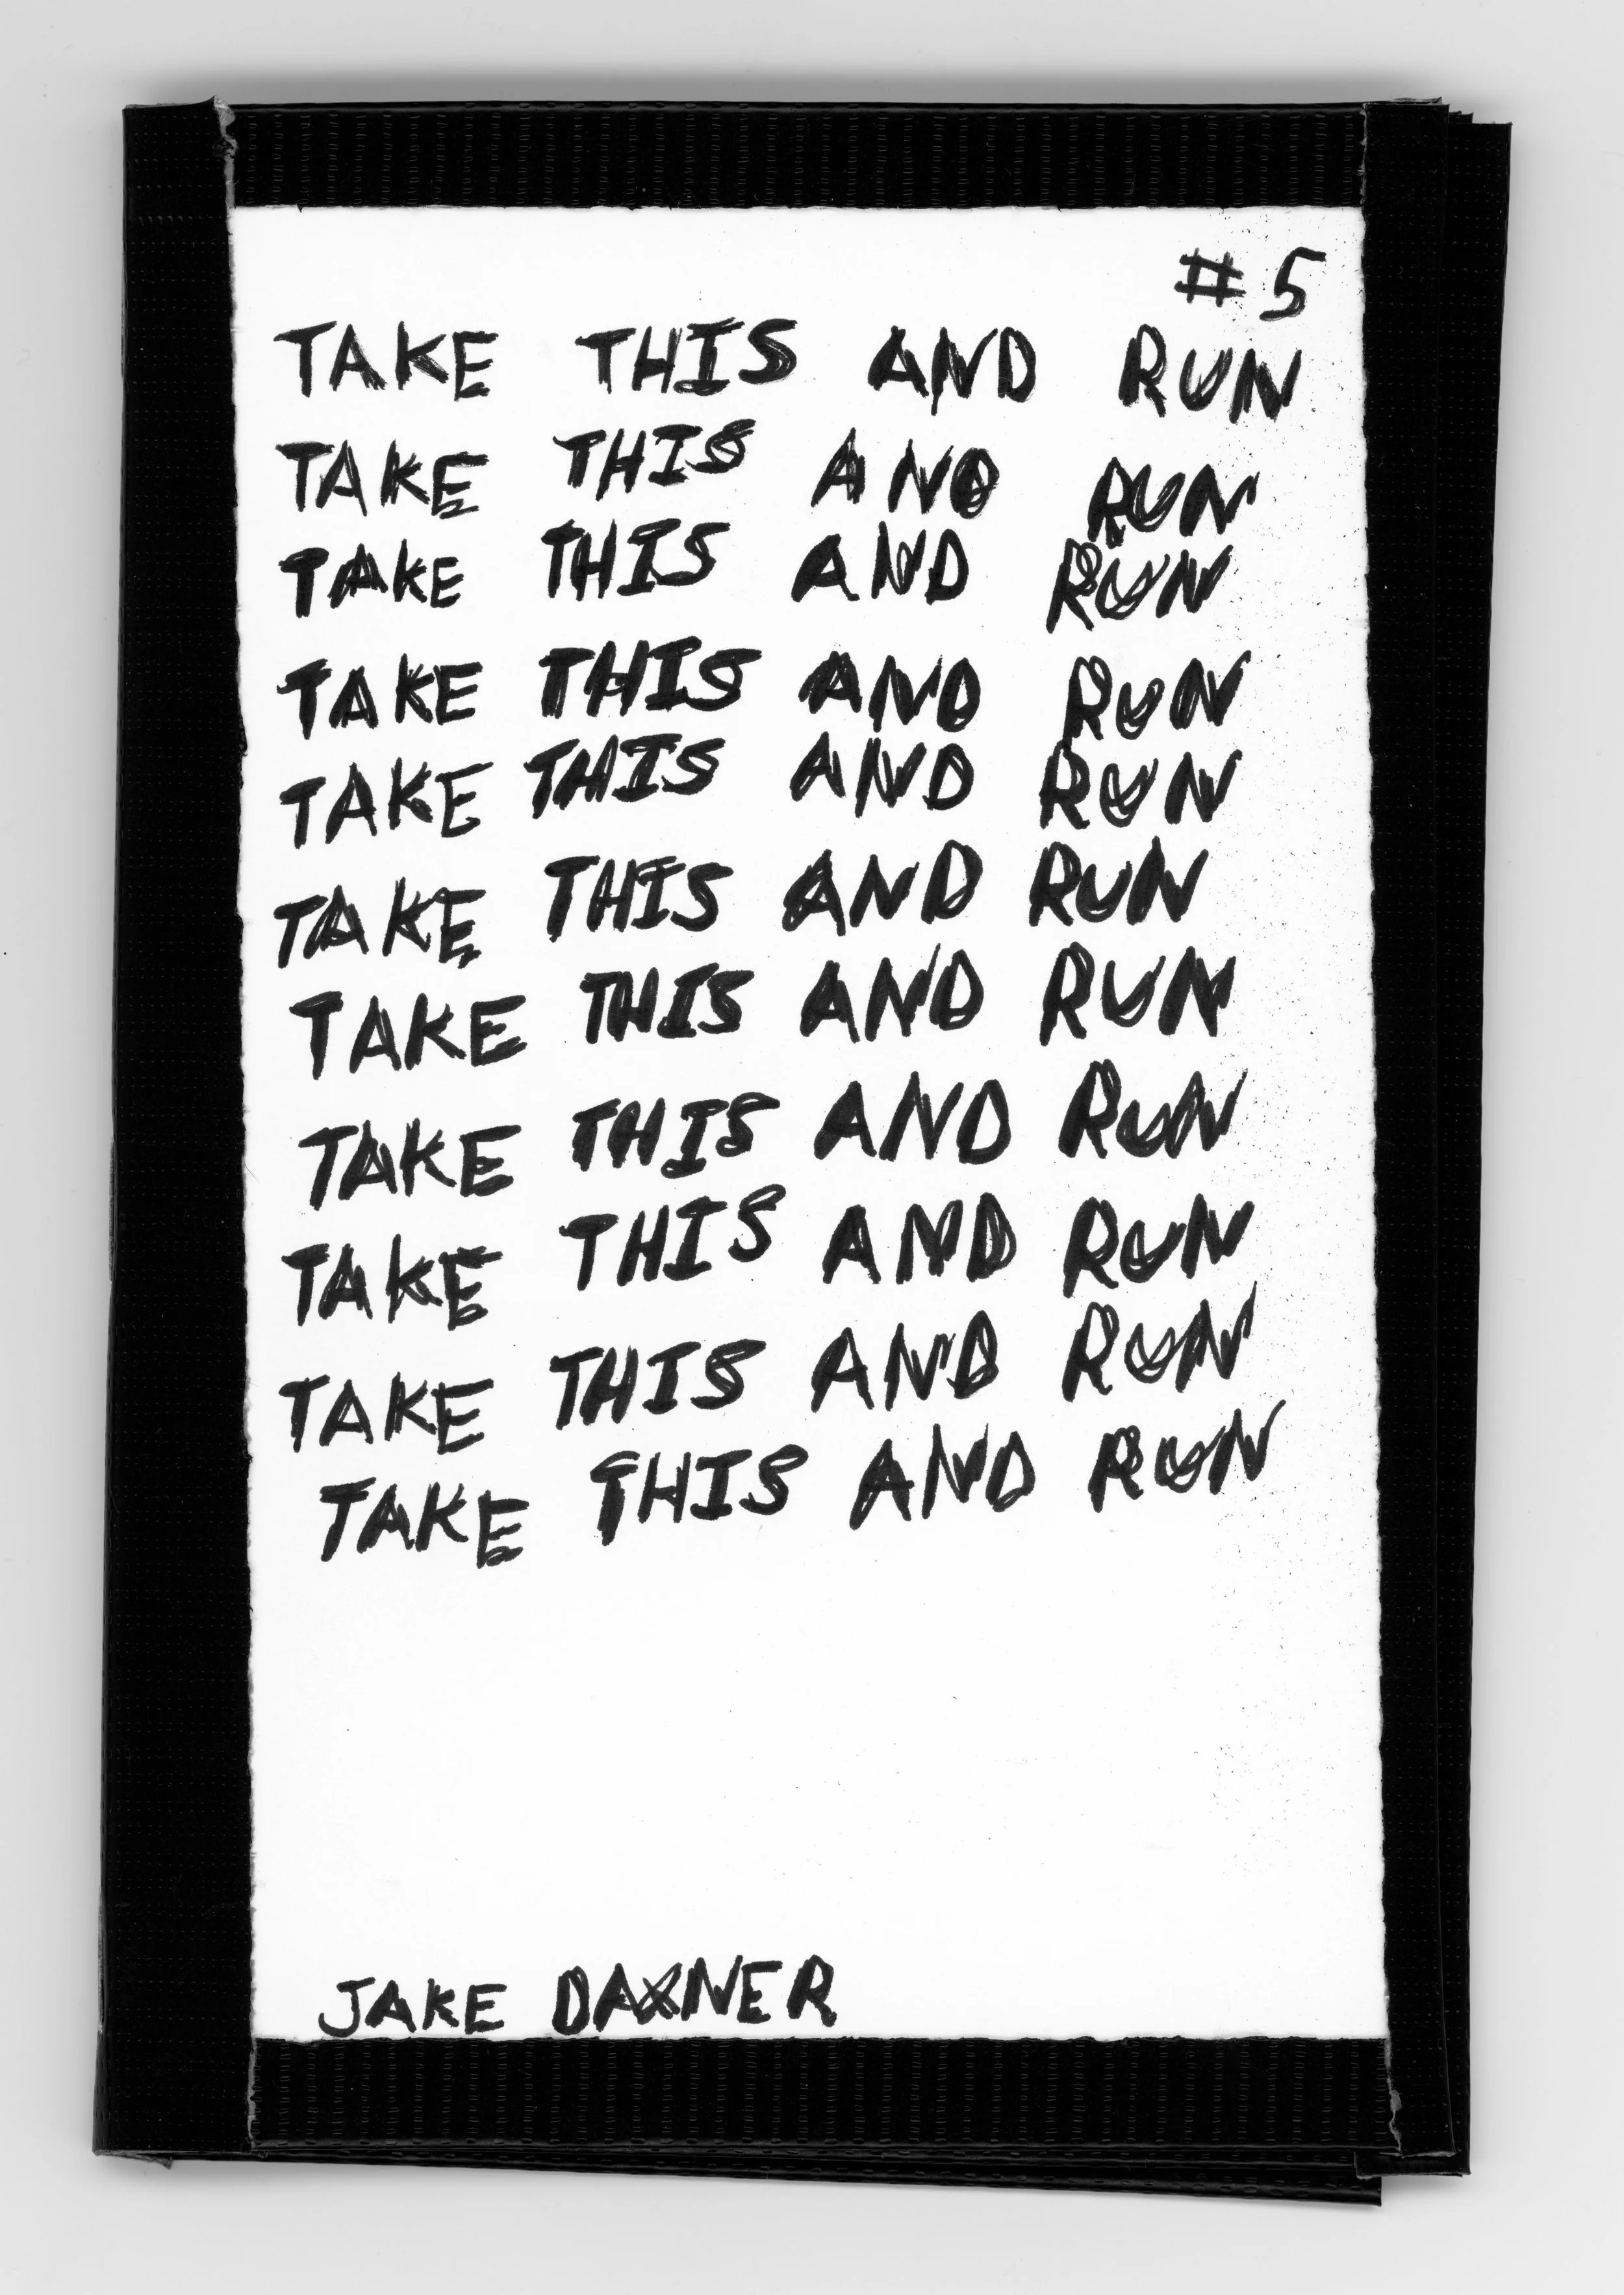 #5
TAKE THIS AND RUN
TAKE THIS AND RUN
TAKE THIS AND RUN
TAKE THIS AND RUN
TAKE THIS AND RUN
TAKE THIS AND RUN
TAKE THIS AND RUN
TAKE THIS AND RUN
TAKE THIS AND RUN
TAKE THIS AND RUN
TAKE THIS AND RUN
JAKE DAXNER